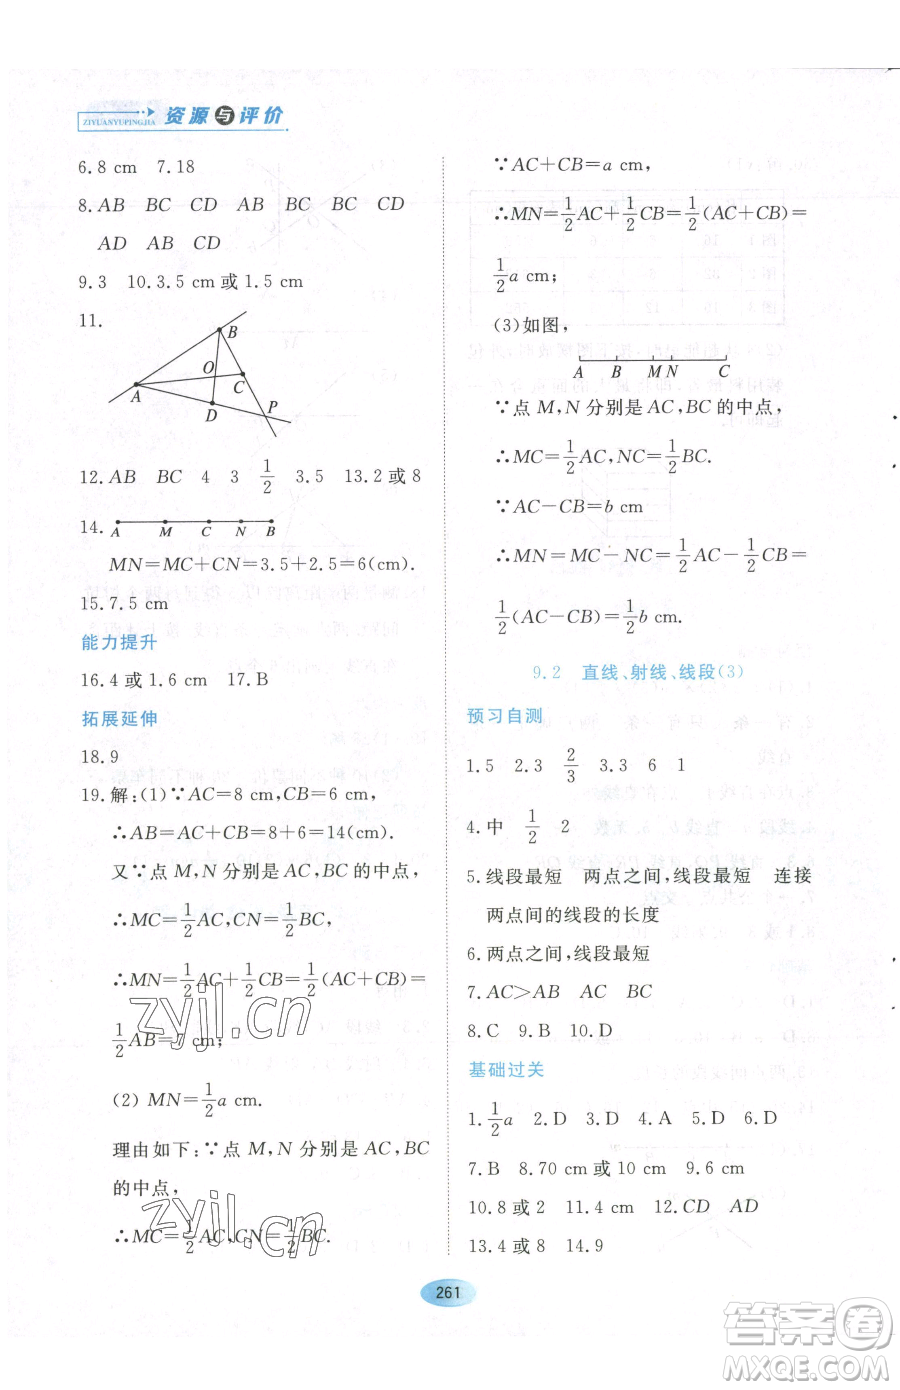 ZIYUANYUPINGJIA
资源与评价
6.8 cm 7.18
8.AB BC CD AB BC BC CD
AD AB CD
9.3 10.3.5 cm或1.5 cm
11.
B
O
C
A
D
P
12.AB BC 4 3 1/2 3.5 13.2或8
14.
A M C N B
MN=MC+CN=3.5+2.5=6(cm).
15.7.5 cm
能力提升
16.4或1.6 cm 17.B
拓展延伸
18.9
19.解:(1)∵AC=8 cm,CB=6 cm,
∴AB=AC+CB=8+6=14(cm).
又∵点M,N分别是AC,BC的中点,
∴MC=1/2AC,CN=1/2BC,
∴MN=1/2AC+1/2CB=1/2(AC+CB)=
1/2AB=7 cm;
(2) MN=1/2a cm.
理由如下:∵点M,N分别是AC,BC
的中点,
∴MC=1/2AC,CN=1/2BC.
∵AC+CB=a cm,
∴MN=1/2AC+1/2CB=1/2(AC+CB)=
1/2a cm;
(3)如图,
A B M N C
∵点M,N分别是AC,BC的中点,
∴MC=1/2AC,NC=1/2BC.
∵AC-CB=b cm
∴MN=MC-NC=1/2AC-1/2CB=
1/2(AC-CB)=1/2b cm.
9.2 直线、射线、线段(3)
预习自测
1.5 2.3 2/3 3.3 6 1
4.中 1/2 2
5.线段最短 两点之间,线段最短 连接
两点间的线段的长度
6.两点之间,线段最短
7.AC>AB AC BC
8.C 9.B 10.D
基础过关
1.1/2a 2.D 3.D 4.A 5.D 6.D
7.B 8.70 cm或10 cm 9.6 cm
10.8或2 11.4 cm 12.CD AD
13.4或8 14.9
261
zyjl.cn
zyjl.cn
答案圈
MXQE.COM